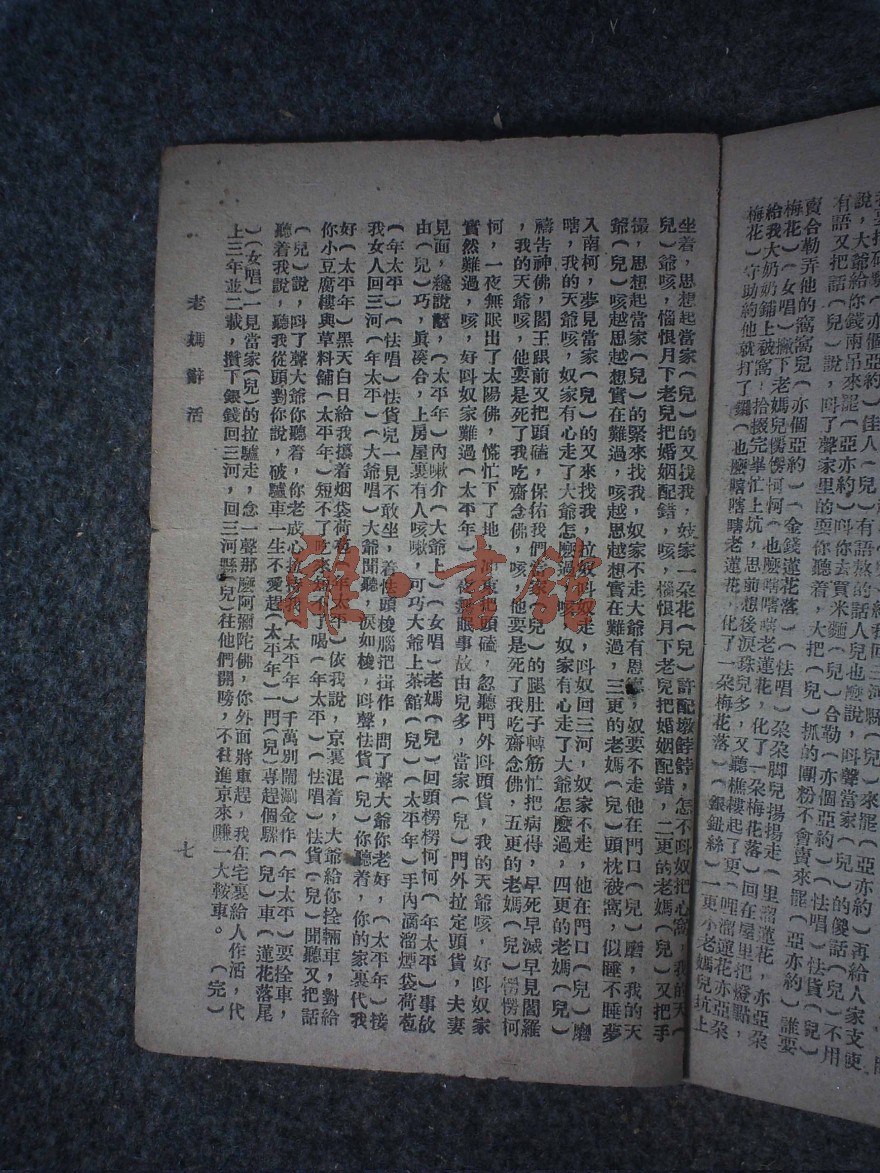 說，大爺給你錢兩吊來罷（亞亦約）呌你去買米麵（兒）合勒（亦個亞約）（怯唱）怯貨（兒）不用
有語又把話（兒）說，呌了聲家里的耍你聽着，大把（兒）抓的團粉不會賣來罷（亞亦約）誰要
賣合勒弄他的窩窩兒（亦個亞約）（金錢蓮花落）（怯唱）朶朶脚兒揚揚走（里溜蓮花，亦亞朶
梅花）（女唱）撇下老媽兒愣愣柯柯（也麽嗐嗐嗐老蓮花，化了一朶梅花落）回在屋里把燈點，
給我大奶奶鋪上被窩，拾掇完畢忙上坑，思前想後淚珠兒多，又聽樵樓起了更（哩溜蓮花亦亞朶
梅花）守助約他就打了鑼（也麽嗐嗐嗐老蓮花，化了一朶梅花落）（銀鈕絲）一更小老媽兒坑上
坐着，思想起當家（兒）的又找我，奴家一朶花（兒）許配墩餑餑，怎不呌奴把心窩，我的天（
兒）爺咳，惱恨月下老兒把婚姻配錯，咳，惱恨月下老兒把婚姻配錯，二更的老媽（兒）又把手
撮，思想起當家（兒）的緊來找我，奴家不走大爺有恩德，奴要不走他在門口（兒）磨，我的天
爺（兒）咳越思越想實在難過，咳越思越想實在難過，三更的老媽（兒）頭枕被窩，似睡不睡夢
入南柯，夢見當家（兒）的又來找我，拉奴呌奴走，呌奴回三河，奴家不走，他在門口（兒）磨
嗐，我的天爺咳，奴家有心走了大爺怎麽過，咳，奴家有心走了大爺怎麽過，四更的老媽（兒）
禱告神佛，閻王眼前又把頭磕，保佑我們當家（兒）的腿肚子轉筋忙把病得，早死早滅早見閻羅
，我的天爺咳，他要是死了我吃齋念佛，咳，他要是死了我吃齋念佛，五更的老媽（兒）愣愣柯
柯，一夜無眠出了太陽佛，慌忙下了地，又把頭磕，忽聽門外呌頭貨，我的天爺咳，好呌奴家
實然難過，咳，好呌奴家難過（太平年）一夜無眠事故由兒多，當家（兒）門外拉定頭貨，夫妻
見面，纔說話，（太平年）內嗽介（大爺上）（女唱）老媽（兒）回頭楞楞柯柯（年太平）事故
由（兒）巧，眞湊合，上房屋裏有人咳嗽，可巧大爺上茶館（兒）（太平年）手內滴溜煙袋荷苞
（年太平）（怯唱）怯貨兒一見不敢坐，着性頭梭腦把揖作，問了聲大爺你老好，（太平年）接
我女人回三河（年太平）（大爺唱）大爺聞聽，淚如梭，呌聲怯貨（兒）你聽着，你的家裏代我
好（太平年）黑天白日給我攥着烟袋荷苞（年太平）依我說，京裏混着，大爺給你拴輛車，對給
你小豆腐樓與草料舖（太平年）短不了吃來短不了喝（年太平）（怯唱）怯貨（兒）聞聽又把話
（兒）說，呌了聲大爺你聽着，你老成心抬待我（太平年）千萬別鬧涮金作（年太平）要拴車，
聽着我說，聽我從頭對你說，破驢車一生不愛趕（太平年）一門（兒）專趕個騾（兒）車（蓮花落尾
）（女唱）一見當家（兒）的拉驢走，念一聲那麽阿彌陀佛，你外面將車趕，我在宅裏給人作活，代
上三年並二載，攢下銀錢回三河，回三河縣（兒）在他們開嗙，不枉進京來賺一大鞍車。（完）
老媽辭活
七
雅·書館